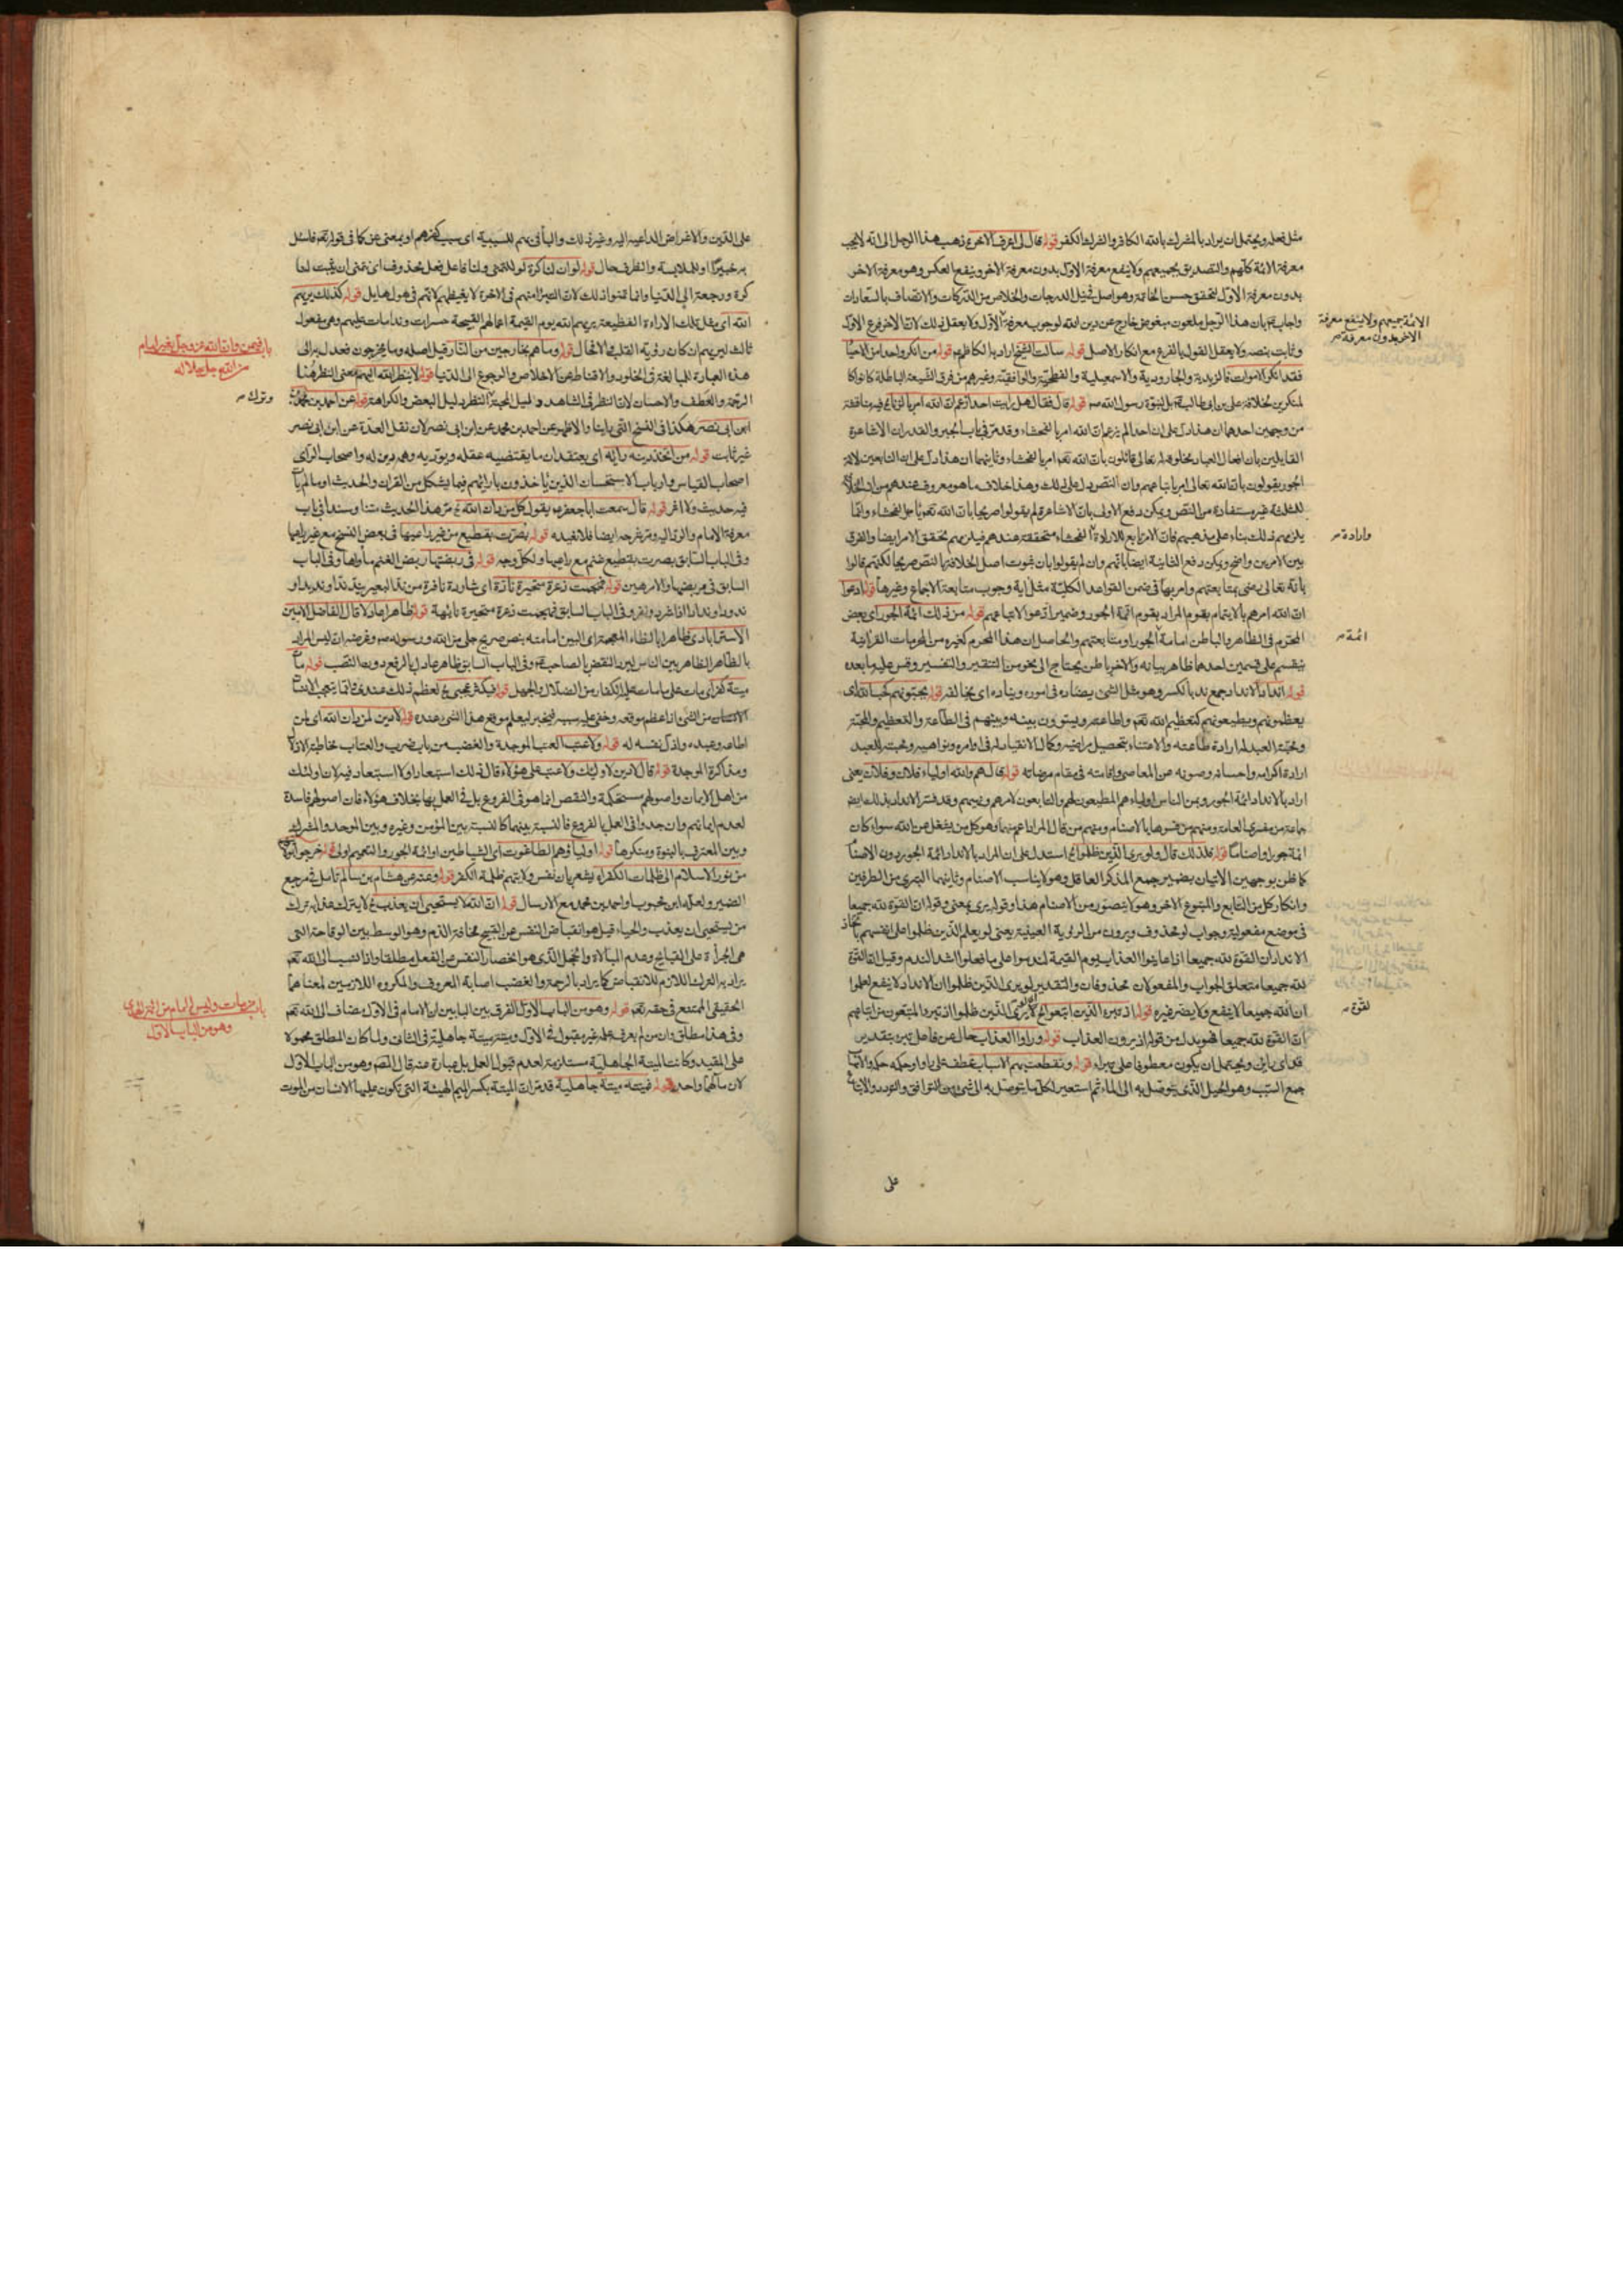 مثل فعله ويحتمل ان يراد بالمشرك بالله الكافر والشرك الكفر قوله قال لى اعرف الاخر ذهب هذا الرجل الى انه لايجب
معرفة الائمة كلهم والتصديق بجميعهم ولا ينفع معرفة الاول بدون معرفة الاخر وينفع العكس وهو معرفة الاخر
بدون معرفة الاول لتحقق حسن الخاتمة وهو اصل فى نيل الدرجات والخلاص من الدركات والاتصاف بالسعادات
واجاب بان هذا الرجل ملعون مبغوض خارج عن دين الله لوجوب معرفة الاول ولا يعقل ذلك لان الاخر فرع الاول
وثابت بنصه ولا يعقل القول بالفرع مع انكار الاصل قوله سالت الشيخ اراد بالكاظم قوله من انكر واحدا من الاحياء
فقد انكر الاموات فالزيدية والجارودية والاسمعيلية والفطحية والواقفية وغيرهم من فرق الشيعة الباطلة كانوا كا
لمنكرين لخلافة على بن ابى طالب بل لنبوة رسول الله ص قوله قال فقال هل رايت احدا زعم ان الله امر بالزنا
من وجهين احدهما ان هذا دل على ان احدا لم يزعم ان الله امر بالفحشاء وقد مر فى باب الجبر والقدر ان الاشاعرة
القايلين بان افعال العباد مخلوقة له تعالى قائلون بان الله تعم امر بالفحشاء وثانيهما ان هذا دل على ان التابعين لائمة
الجور يقولون بان الله تعالى امر باتباعهم وان النص دل على ذلك وهذا خلاف ما هو معروف عندهم من ان الخلافة
للثلثة غير مستفادة من النص ويمكن دفع الاول بان الاشاعرة لم يقولوا صريحا بان الله تعم يامر بالفحشاء وانما
يلزمهم ذلك بناء على مذهبهم فان الامر تابع للارادة الفحشاء متحققة عندهم فيلزمهم تحقق الامر ايضا والفرق
بين الامرين واضح ويمكن دفع الثانية ايضا بانهم وان لم يقولوا بان ثبوت اصل الخلافة بالنص صريحا لكنهم قالوا
بانه تعالى رضى بمتابعتهم وامر بها فى ضمن القواعد الكلية مثل اية وجوب متابعة الاجماع وغيرها قوله ادعوا
ان الله امرهم بالايتمام بقوم المراد بقوم ائمة الجور وضمير ادعوا لاتباعهم قوله من ذلك ائمة الجور اى بعض
المحرم فى الظاهر والباطن امامة الجور او متابعتهم والحاصل ان هذا المحرم كغيره من المحرمات القرانية
ينقسم على قسمين احدهما ظاهر بيانه والاخر باطن يحتاج الى نحو من التنقير والتفسير وقس عليه ما بعده
قوله اندادا الانداد جمع ند بالكسر وهو مثل الشئ يضاده فى اموره ويناده اى يخالفه قوله يحبونهم كحب الله اى
يعظمونهم ويطيعونهم كتعظيم الله تعم واطاعته ويسوون بينه وبينهم فى الطاعة والتعظيم والمحبة
ومحبة العبد له ارادة طاعته والاعتناء بتحصيل مراضيه وكمال الانقياد له فى اوامره ونواهيه ومحبته للعبد
ارادة اكرامه واحسانه وصونه عن المعاصى واقامته فى مقام مرضاته قوله قال هم والله اولياء فلان وفلان يعنى
اراد بالانداد ائمة الجور ومن الناس اولياءهم المطيعون لهم والتابعون لامرهم ونهيهم وقد فسر الانداد بذلك ايضا
جماعة من مفسرى العامة ومنهم من فسرها بالاصنام ومنهم من قال المراد اعم منهما وهو كل من يشغل عن الله سواء كان
ائمة جور او اصناما قوله فلذلك قال ولو يرى الذين ظلموا الخ استدل على ان المراد بالانداد ائمة الجور دون الاصنام
كما ظن بوجهين الاتيان بضمير جمع المذكر العاقل وهو لا يناسب الاصنام وثانيهما التبرى من الطرفين
وانكار كل من التابع والمتبوع الاخر وهو لا يتصور من الاصنام هذا وقوله يرى بمعنى وقوله ان القوة لله جميعا
فى موضع مفعوليه وجواب لو محذوف ويرون من الروية العينية يعنى لو يعلم الذين ظلموا على انفسهم باتخاذ
الانداد ان القوة لله جميعا اذا عاينوا العذاب يوم القيمة لندموا على ما فعلوا اشد الندم وقيل ان القوة
لله جميعا متعلق الجواب والمفعولان محذوفان والتقدير لو يرى الذين ظلموا ان الانداد لا ينفع لعلموا
ان الله جميعا لا ينفع ولا يضر غيره قوله اذ تبرء الذين اتبعوا الخ لا يرى الذين ظلموا اذ تبرء المتبعون من اتباعهم
ان القوة لله جميعا فهو بدل من قوله اذ يرون العذاب قوله وراوا العذاب حال عن فاعل تبرء بتقدير
قد اى رائين ويحتمل ان يكون معطوفا على تبراء قوله وتقطعت بهم الاسباب عطف على راوا وحكمه حكمه والاسباب
جمع السبب وهو الحبل الذى يتوصل به الى الماء ثم استعير لكل ما يتوصل به الى شئ من التوافق والتودد والاتباع
على
الائمة جميعهم ولا ينفع معرفة
الاخر بدون معرفة ص
وارادة ص
ائمة ص
لقوة ص
على الدين والاغراض الداعية اليه وغير ذلك والباء فى بهم للسببية اى بسبب كفرهم او بمعنى عن كما فى قوله تعم فاسئل
به خبيرا او للملابسة والظرف حال قوله لو ان لنا كرة لو للتمنى ولنا فاعل فعل محذوف اى نتمنى ان يثبت لنا
كرة ورجعة الى الدنيا وانما تمنوا ذلك لان التبرء منهم فى الاخرة لا يغيظهم لانهم فى هول هايل قوله كذلك يريهم
الله اى مثل تلك الاراءة الفظيعة يريهم الله يوم القيمة اعمالهم القبيحة حسرات وندامات عليهم وهى مفعول
ثالث ليريهم ان كان رؤية القلب والا فحال قوله وما هم بخارجين من النار قيل اصله وما يخرجون فعدل به الى
هذه العبارة للمبالغة فى الخلود والاقناط عن الاخلاص والرجوع الى الدنيا قوله لا ينظر الله اليهم معنى النظر هنا
الرحمة والعطف والاحسان لان النظر فى الشاهد دليل المحبة النظر دليل البغض والكراهة قوله عن احمد بن محمد
ابن ابى نصر هكذا فى النسخ التى رايناها والاظهر عن احمد بن محمد عن ابن ابى نصر لان نقل العدة عن ابن ابى نصر
غير ثابت قوله من اتخذ دينه رايه اى يعتقد ان ما يقتضيه عقله ويؤديه وهمه دين له واصحاب الراى
اصحاب القياس وارباب الاستحسان الذين ياخذون بارائهم فيما يشكل من القران والحديث او ما لم يأت
فيه حديث ولا اثر قوله قال سمعت ابا جعفر يقول كل من دان الله الخ مر هذا الحديث متنا وسندا فى باب
معرفة الامام والرد اليه ومر شرحه ايضا فلا نفيده قوله بصرت بقطيع من غير راعيها فى بعض النسخ مع غير راعيها
وفى الباب السابق بصرت بقطيع غنم مع راعيها ولكل وجه قوله فى ربضتها ربض الغنم مأواها وفى الباب
السابق فى مربضها والامر هين قوله فهجمت ذعرة متحيرة نادة اى شاردة نافرة من ند البعير يند ندا ونديدا و
ندودا وندادا اذا شرد ونفر وفى الباب السابق فهجمت ذعرة متحيرة تائهة قوله ظاهرا عادلا قال الفاضل الامين
الاسترابادى ظاهرا بالظاء المعجمة اى البين امامته بنص صريح جلى من الله ورسوله ص وغرضه ان ليس المراد
بالظاهر الظاهر بين الناس ليرد النقض بالصاحب وفى الباب السابق ظاهر عادل بالرفع دون النصب قوله مات
ميتة كفر اى مات على ما مات عليه الكفار من الضلال والجهل قوله فيكثر عجبى الخ لعظم ذلك عنده وانما يتعجب الانسان
من الشئ اذا عظم موقعه وخفى عليه سببه فيخبر ليعلم موقع هذا الشئ عنده قوله لا دين لمن دان الله اى لمن
اطاعه وعبده واذل نفسه له قوله ولا عتب العتب الموجدة والغضب من باب ضرب والعتاب مخاطبة الادلال
ومذاكرة الموجدة قوله قال لا دين لاولئك ولا عتب على هؤلاء قال ذلك استبعادا ولا استبعاد فيه لان اولئك
من اهل الايمان واصولهم مستحكمة والنقص انما هو فى الفروع بل فى العمل بها بخلاف هؤلاء فان اصولهم فاسدة
لعدم ايمانهم وان جدوا فى العمل بالفروع فالنسبة بينهما كالنسبة بين المؤمن وغيره وبين الموحد والمشرك
وبين المعترف بالنبوة ومنكرها قوله اولياؤهم الطاغوت اى الشياطين او ائمة الجور والتعميم اولى قوله خرجوا بولايتهم
من نور الاسلام الى ظلمات الكفر اه يشعر بان نفس ولايتهم ظلمة الكفر قوله وعنه عن هشام بن سالم تامل فى مرجع
الضمير ولعله ابن محبوب او احمد بن محمد مع الارسال قوله ان الله لا يستحيى ان يعذب الخ لا يترك عذابه ترك
من يستحيى ان يعذب والحياء قيل هو انقباض النفس عن القبيح مخافة الذم وهو الوسط بين الوقاحة التى
هى الجراة على القبايح وعدم المبالاة والخجل الذى هو انحصار النفس عن الفعل مطلقا واذا نسب الى الله تعم
يراد به الترك اللازم للانقباض كما يراد بالرحمة والغضب اصابة المعروف والمكروه اللازمين لمعناهما
الحقيقى الممتنع فى حقه تعم قوله وهو من الباب الاول الفرق بين البابين ان الامام فى الاول مضاف الى الله تعم
وفى هذا مطلق وان من لم يعرف عمله غير مقبول فى الاول وميتته ميتة جاهلية فى الثانى ولما كان المطلق محمولا
على المقيد وكانت الميتة الجاهلية مستلزمة لعدم قبول العمل بل عبارة عنه قال المصنف وهو من الباب الاول
لان مآلهما واحد قوله فميتته ميتة جاهلية قد مر ان الميتة بكسر الميم الهيئة التى تكون عليها الانسان من الموت
باب فيمن دان الله عز وجل بغير امام
من الله جل جلاله
وترك ص
باب من مات وليس له امام من ائمة الهدى
وهو من الباب الاول